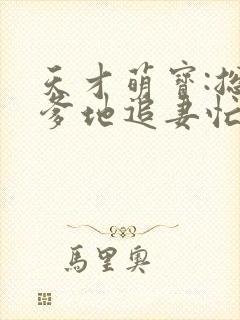 天才萌寶:總
爹地追妻忙
馬里奧